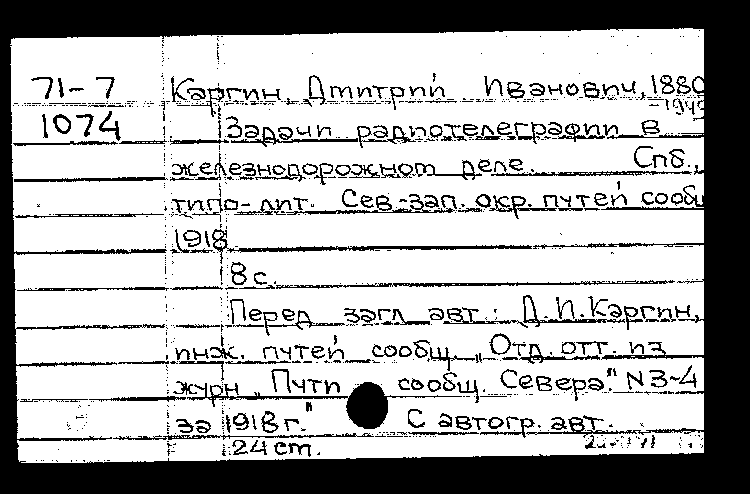 71-7 Каргин, Дмитрий Иванович, 1880
-1949
1074 Задачи радиотелеграфии в
железнодорожном деле. Спб.,
типо-лит. Сев-зап. окр. путей сообщ
1918
8 с.
Перед загл авт.: Д.И.Каргин,
инж. путей сообщ. „Отд. отт. из
журн „Пути сообщ. Севера". N 3-4
за 1918 г." С автогр. авт.
24 ст.